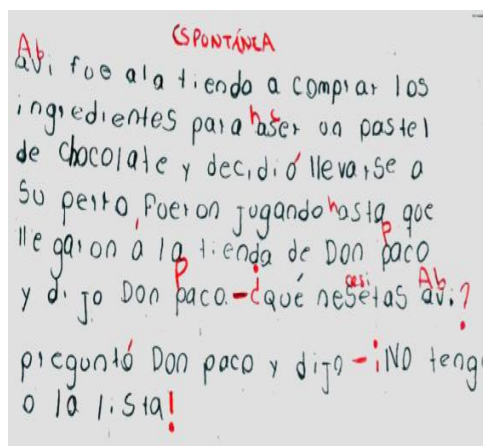 ESPONTÁNEA
Ab
avi fue ala tienda a comprar los
h c
ingredientes para aser un pastel
de chocolate y decidió llevarse a
su perro, fueron jugando hasta que
P
llegaron a la tienda de Don paco
P cesi Ab
y dijo Don paco. -¿qué nesetas avi?
preguntó Don paco y dijo -¡NO teng
o la lista!